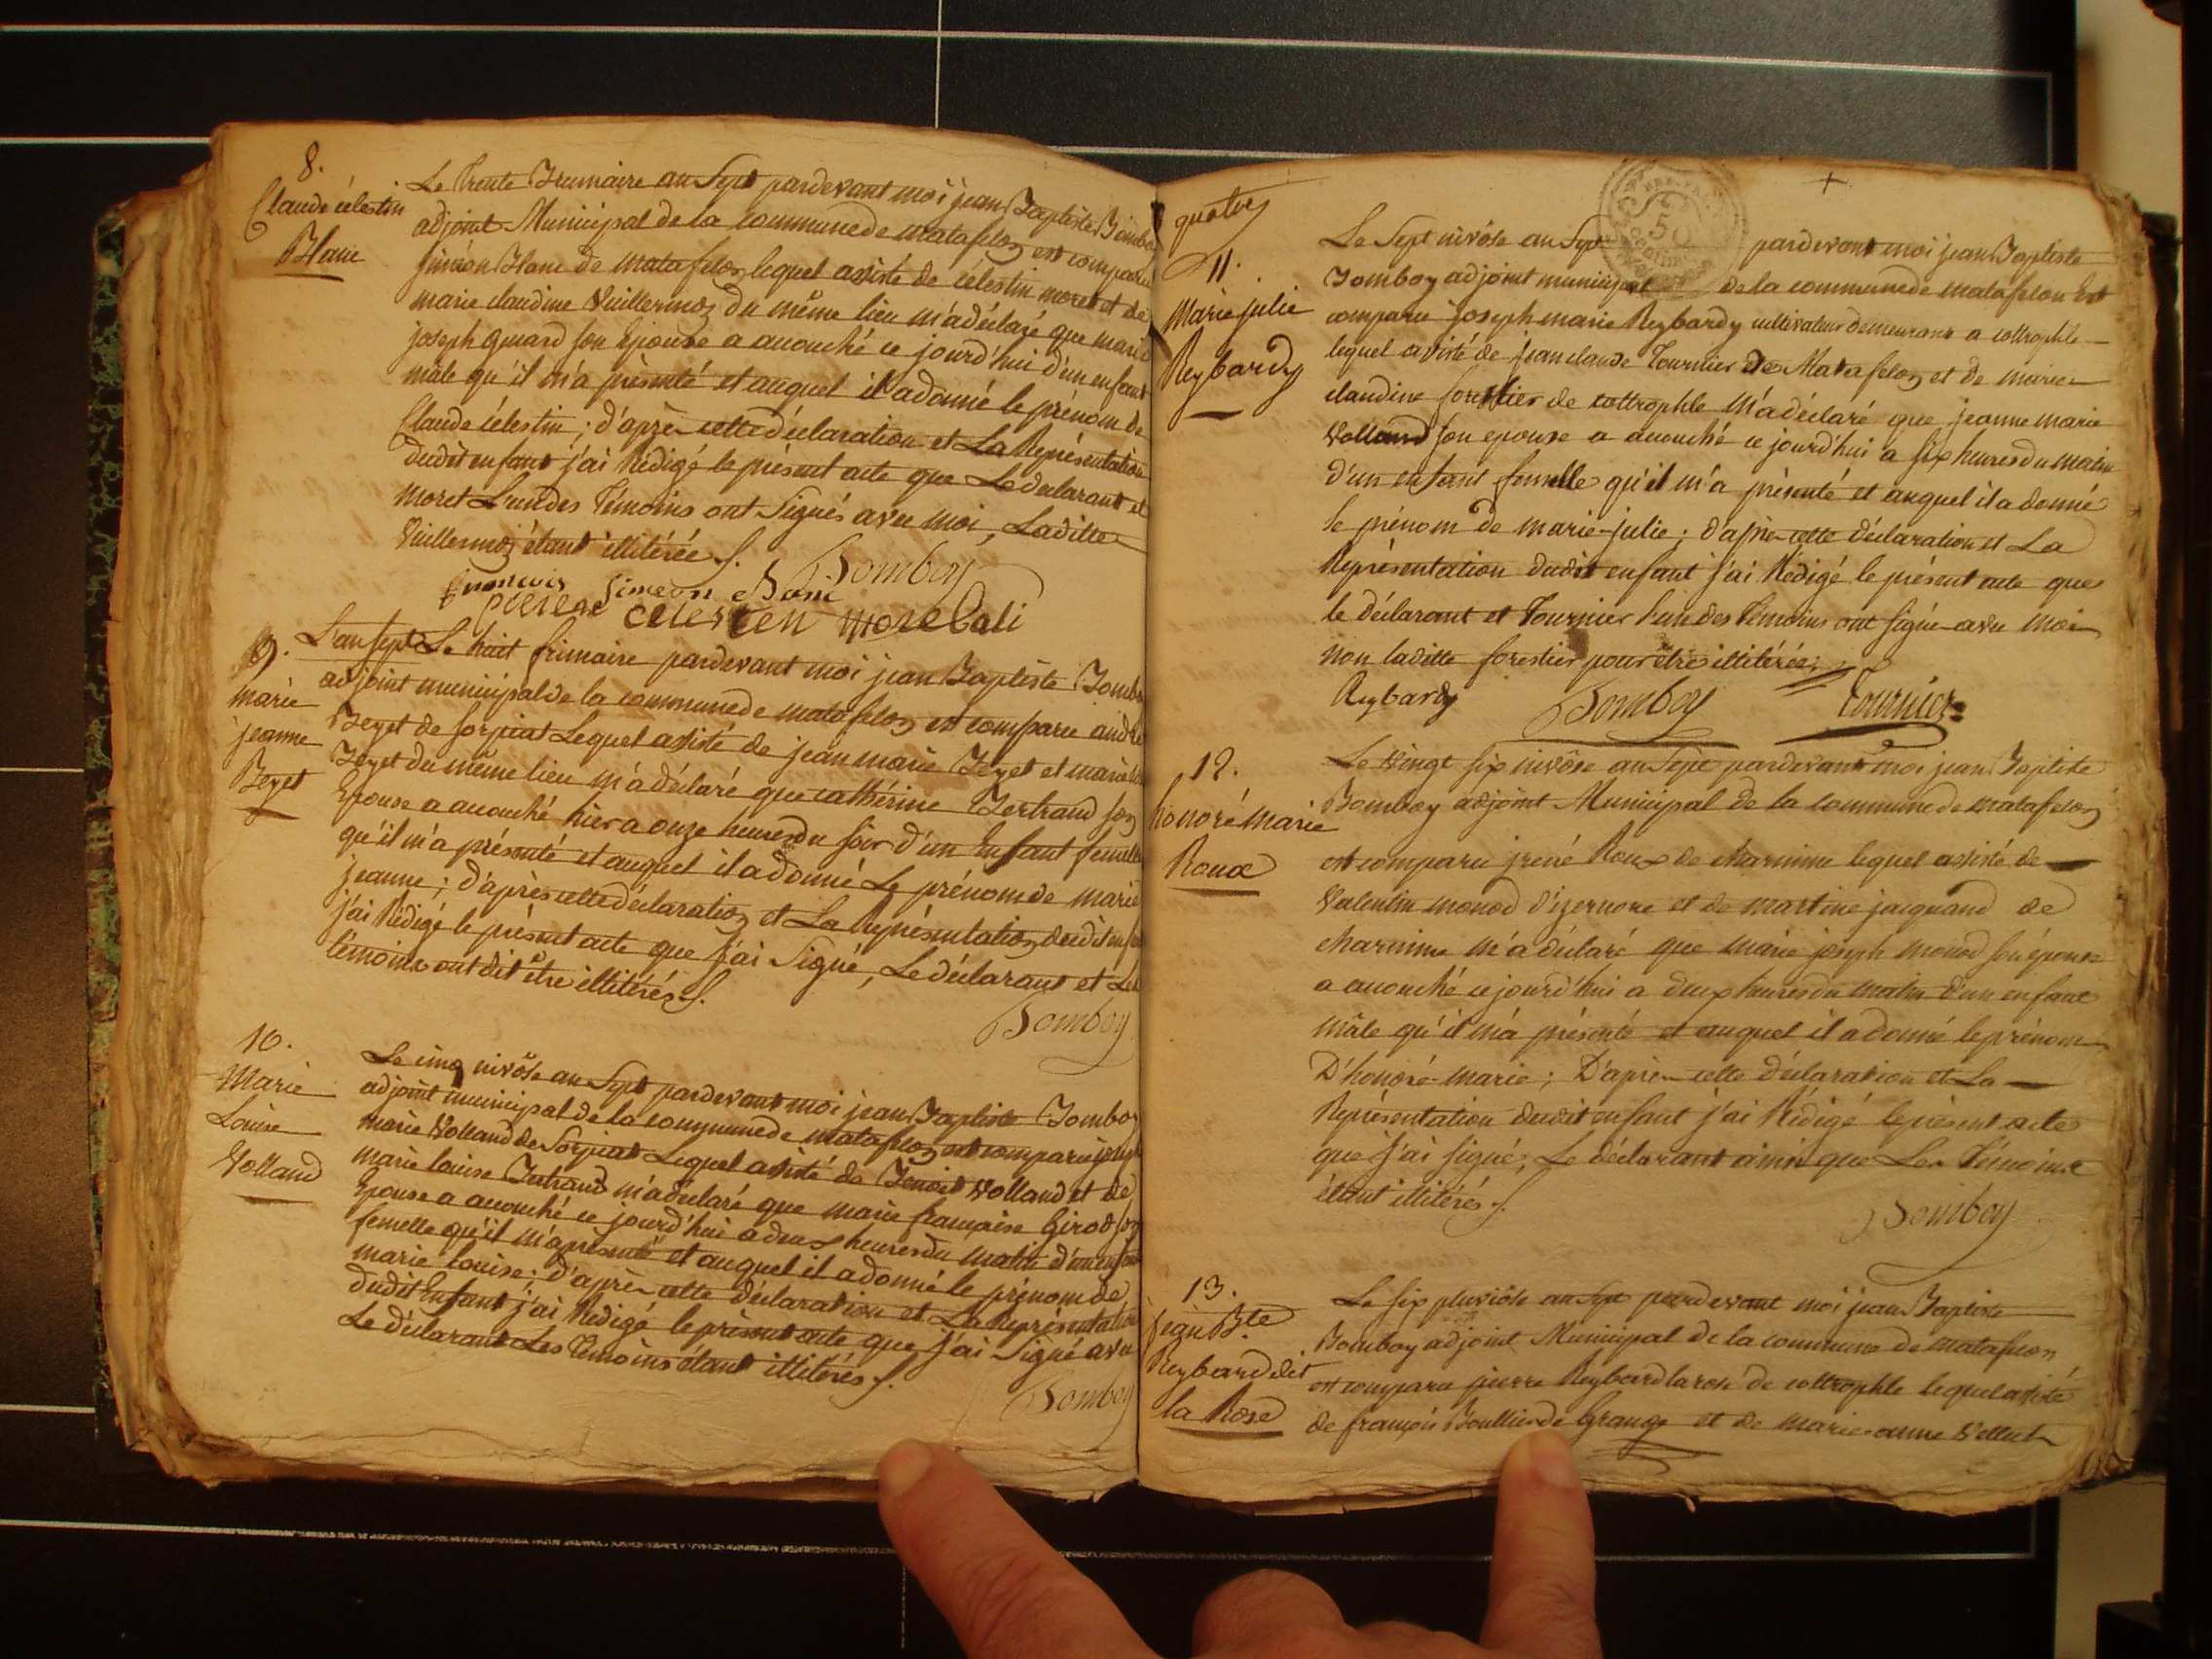 8.
Claude célestin
Blanc
Le Trente Brumaire an Sept pardevant moi jean Baptiste Bomboy
adjoint Municipal de la commune de matafelon est comparu
siméon Blanc de matafelon lequel assisté de célestin moret et de
marie claudine Vuillermoz du même lieu m'a déclaré que marie
joseph son Epouse a accouché ce jourd'hui d'un enfant
mâle qu'il m'a présenté et auquel il a donné le prénom de
Claude célestin ; d'après cette déclaration et La Représentation
dudit enfant j'ai Rédigé le présent acte que Le déclarant et
Moret L'un des Témoins ont Signés avec moi, Laditte
Vuillermoz étant illitérée /.
Bomboy
simeon
celesten
9.
marie
jeanne
Beyet
L'an sept Le huit frimaire pardevant moi jean Baptiste Bomboy
adjoint municipal de la commune de matafelon est comparu andré
Beyet de sorpiat Lequel assisté de jean marie Beyet et marie
Beyet du même lieu m'a déclaré que cathérine Bertrand son
Epouse a accouché hier a onze heures du soir d'un Enfant femelle
qu'il m'a présenté et auquel il a donné Le prénom de marie
jeanne ; d'après cette déclaration et La Représentation dudit enfant
j'ai Rédigé le présent acte que j'ai Signé, Le déclarant et Les
témoins ont dit être illitérés /.
Bomboy
10.
Marie
Louise
Volland
Le cinq nivôse an Sept pardevant moi jean Baptiste Bomboy
adjoint municipal de la commune de matafelon est comparu joseph
marie Volland de Sorpiat Lequel assisté de Benoit Volland et de
marie louise Bertrand m'a déclaré que marie francaise Girod son
Epouse a accouché ce jourd'hui a deux heures du matin d'un enfant
femelle qu'il m'a présenté et auquel il a donné le prénom de
marie louise ; d'après cette déclaration et La Représentation
dudit Enfant j'ai Rédigé le présent acte que j'ai Signé avec
Le déclarant Les Témoins étant illitérés /.
Bomboy
quatre
11.
Marie julie
Reybardy
Le Sept nivôse an Sept pardevant moi jean Baptiste
Bomboy adjoint municipal de la commune de matafelon Est
comparu joseph marie Reybardy cultivateur demeurant a cottrophle
lequel assisté de jean claude Tournier de Matafelon et de marie
claudine forestier de cottrophle m'a déclaré que jeanne marie
Volland son epouse a accouché ce jourd'hui a six heures du matin
d'un enfant femelle qu'il m'a présenté et auquel il a donné
le prénom de marie-julie ; d'après cette déclaration et La
Représentation dudit enfant j'ai Rédigé le présent acte que
le déclarant et Tournier l'un des Témoins ont signé avec moi
non laditte forestier pour être illitérée ;
Reybardy Bomboy Tournier
12.
honoré marie
Roux
Le vingt six nivôse an Sept pardevant moi jean Baptiste
Bomboy adjoint Municipal de la commune de matafelon
est comparu jrené Roux de charmine lequel assisté de
Valentin monod d'izernore et de martine jacquand de
charmine m'a déclaré que marie joseph monod son épouse
a accouché ce jourd'hui a deux heures du matin d'un enfant
mâle qu'il m'a présenté et auquel il a donné le prénom
D'honoré-marie ; D'après cette déclaration et La
Représentation dudit enfant j'ai Rédigé le présent acte
que j'ai signé, Le déclarant ainsi que Les Témoins
étant illitérés /.
Bomboy
13.
jean Bte
Reybard dit
la Rose
Le six pluviôse an Sept pardevant moi jean Baptiste
Bomboy adjoint Municipal de la commune de matafelon
est comparu pierre Reybard larose de cottrophle lequel assisté
de françois Boullier de Grange et de marie-anne Vellut